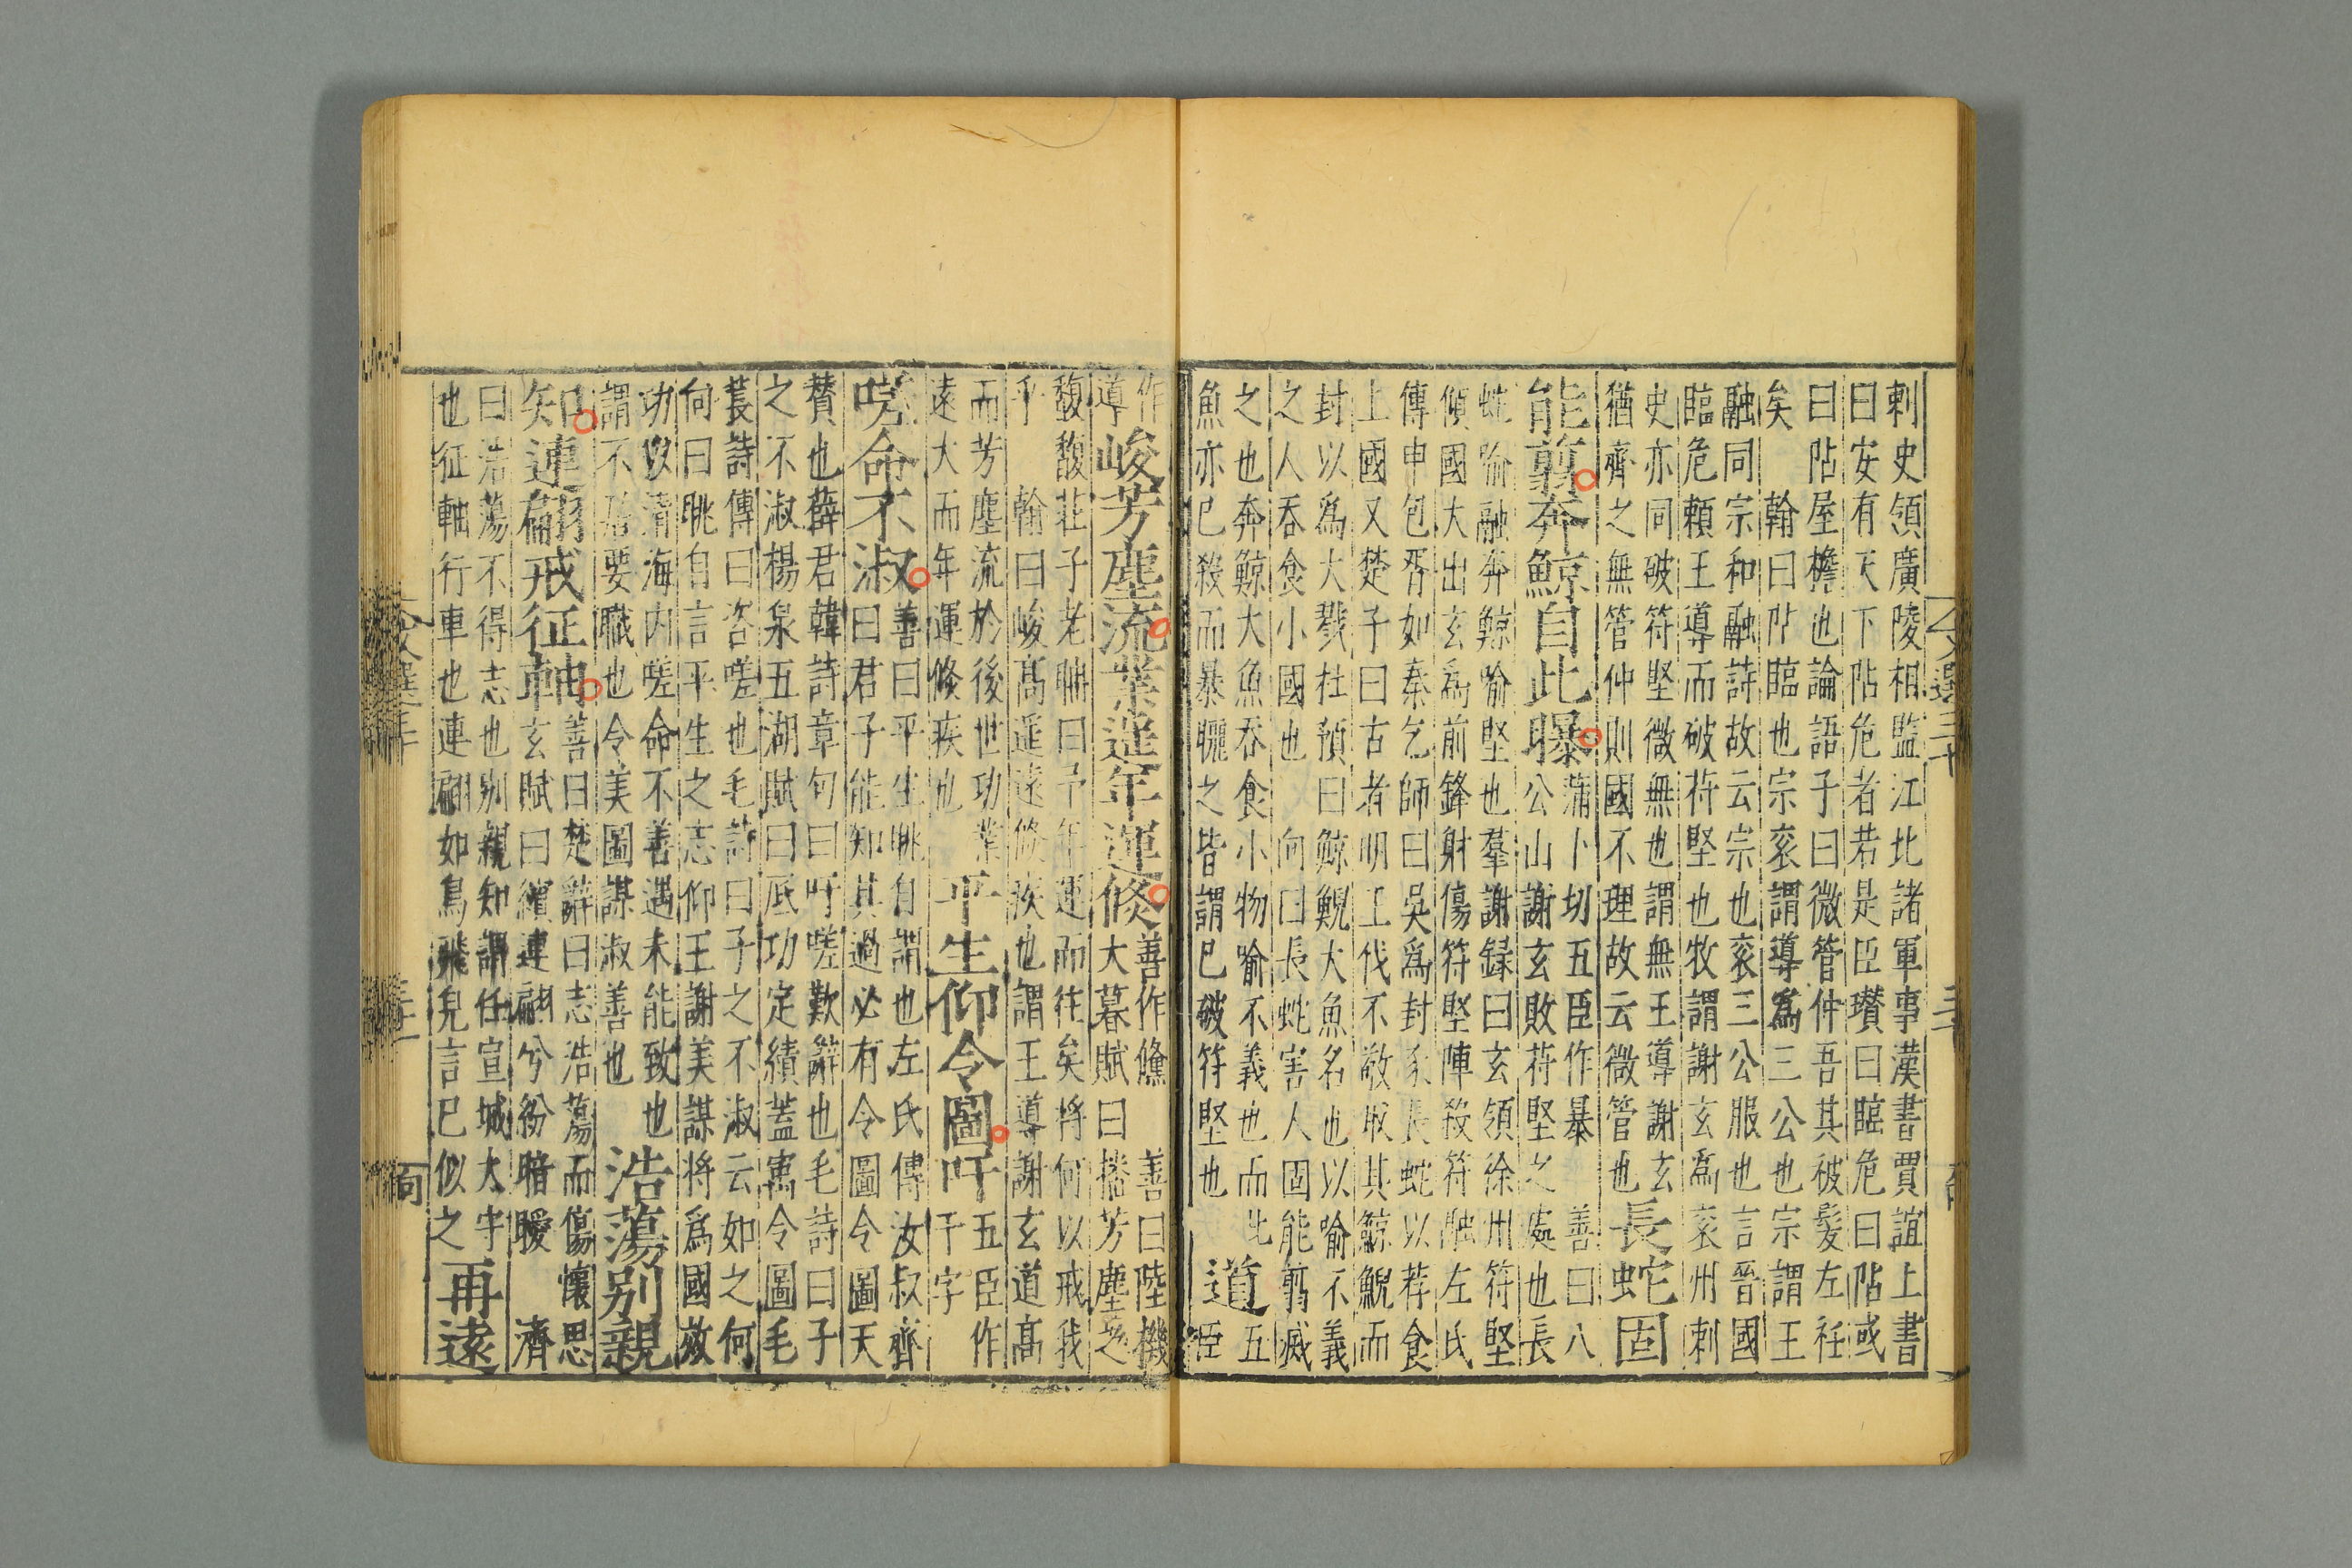 刺史領廣陵相監江北諸軍事漢書賈誼上書
曰安有天下阽危者若是臣瓚曰臨危曰阽或
曰阽屋檐也論語子曰微管仲吾其被髮左衽
矣 翰曰阽臨也宗衮謂導為三公也宗謂王
融同宗和融詩故云宗也衮三公服也言晉國
臨危賴王導而破苻堅也牧謂謝玄為衮州刺
史亦同破苻堅微無也謂無王導謝玄
猶齊之無管仲則國不理故云微管也
長蛇固
能翦奔鯨自此曝
蒲卜切五臣作暴 善曰八
公山謝玄敗苻堅之處也長
蛇喻融奔鯨喻堅也羣謝録曰玄領徐州符堅
傾國大出玄為前鋒射傷符堅陣殺符融左氏
傳申包胥如秦乞師曰吳為封豕長蛇以荐食
上國又楚子曰古者明王伐不敬取其鯨鯢而
封以為大戮杜預曰鯨鯢大魚名也以喻不義
之人吞食小國也 向曰長蛇害人固能翦滅
之也奔鯨大魚吞食小物喻不義也而此
魚亦已殺而暴曬之皆謂已破苻堅也
道
五臣
作導
峻芳塵流業遥年運倏
善作儵 善曰陸機
大暮賦曰播芳塵之
馥馥莊子老聃曰予年運而往矣將何以戒我
乎 翰曰峻髙遥遠倏疾也謂王導謝玄道髙
而芳塵流於後世功業
遠大而年運倏疾也
平生仰令圖吁
五臣作
于字
嗟命不淑
善曰平生眺自謂也左氏傳汝叔齊
曰君子能知其過必有令圖令圖天
賛也薛君韓詩章句曰吁嗟歎辭也毛詩曰子
之不淑楊泉五湖賦曰底功定績蓋寓令圖毛
萇詩傳曰咨嗟也毛詩曰子之不淑云如之何
向曰眺自言平生之志仰王謝美謀將為國效
功以清海内嗟命不善遇未能致也
謂不居要職也令美圖謀淑善也
浩蕩别親
知連翩戒征軸
善曰楚辭曰志浩蕩而傷懷思
玄賦曰繽連翩兮紛暗曖 濟
曰浩蕩不得志也别親知謂任宣城太守
也征軸行車也連翩如鳥飛皃言已似之
再遠